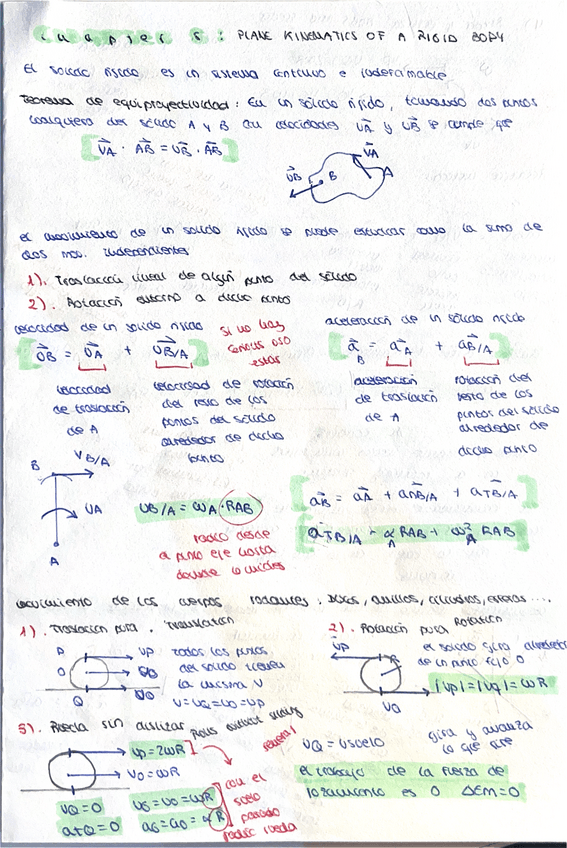 chapter 5: PLANE KINEMATICS OF A RIGID BODY
el solido rigido es un sistema continuo e indeformable
Teorema de equiproyectividad: En un sólido rígido, tomando dos puntos
cualquiera del solido A y B con velocidades v⃗A y v⃗B se cumple que
v⃗A · A⃗B = v⃗B · A⃗B
v⃗A
v⃗B B A
el movimiento de un solido rigido se puede estudiar como la suma de
dos mov. independientes
1). Traslación lineal de algún punto del sólido
2). Rotación entorno a dicho punto
velocidad de un solido rigido
si no hay
v⃗B = v⃗A + v⃗B/A
velocidad
de traslación
de A
velocidad de rotación
del resto de los
puntos del sólido
alrededor de dicho
punto
aceleración de un sólido rigido
a⃗B = a⃗A + a⃗B/A
aceleración
de traslación
de A
rotación del
resto de los
puntos del sólido
alrededor de
dicho punto
B VB/A
VA
A
vB/A = ωA · RAB
radio desde
el punto eje hasta
donde lo mides
a⃗B = a⃗A + a⃗nB/A + a⃗TB/A
a⃗TB/A = αA RAB + ωA² RAB
movimiento de los cuerpos rodantes: discos, anillos, cilindros, esferas ....
1). Traslación pura. Translation
P vP
O
Q
todos los puntos
del solido tienen
la misma v
v=vQ=vO=vP
2). Rotación pura Rotation
v⃗P
R
vQ
el solido gira alrededor
de un punto fijo O
|vP|=|vQ|=ωR
3). Rueda sin deslizar Rolls without sliding
vP=2ωR
vO=ωR
vQ=0
aTQ=0
vG=vO=ωR
aG=aO=αR
con el
suelo
radio rueda
vQ = vsuelo
gira y avanza
lo que gire
el trabajo de la fuerza de
rozamiento es 0 ΔEM=0